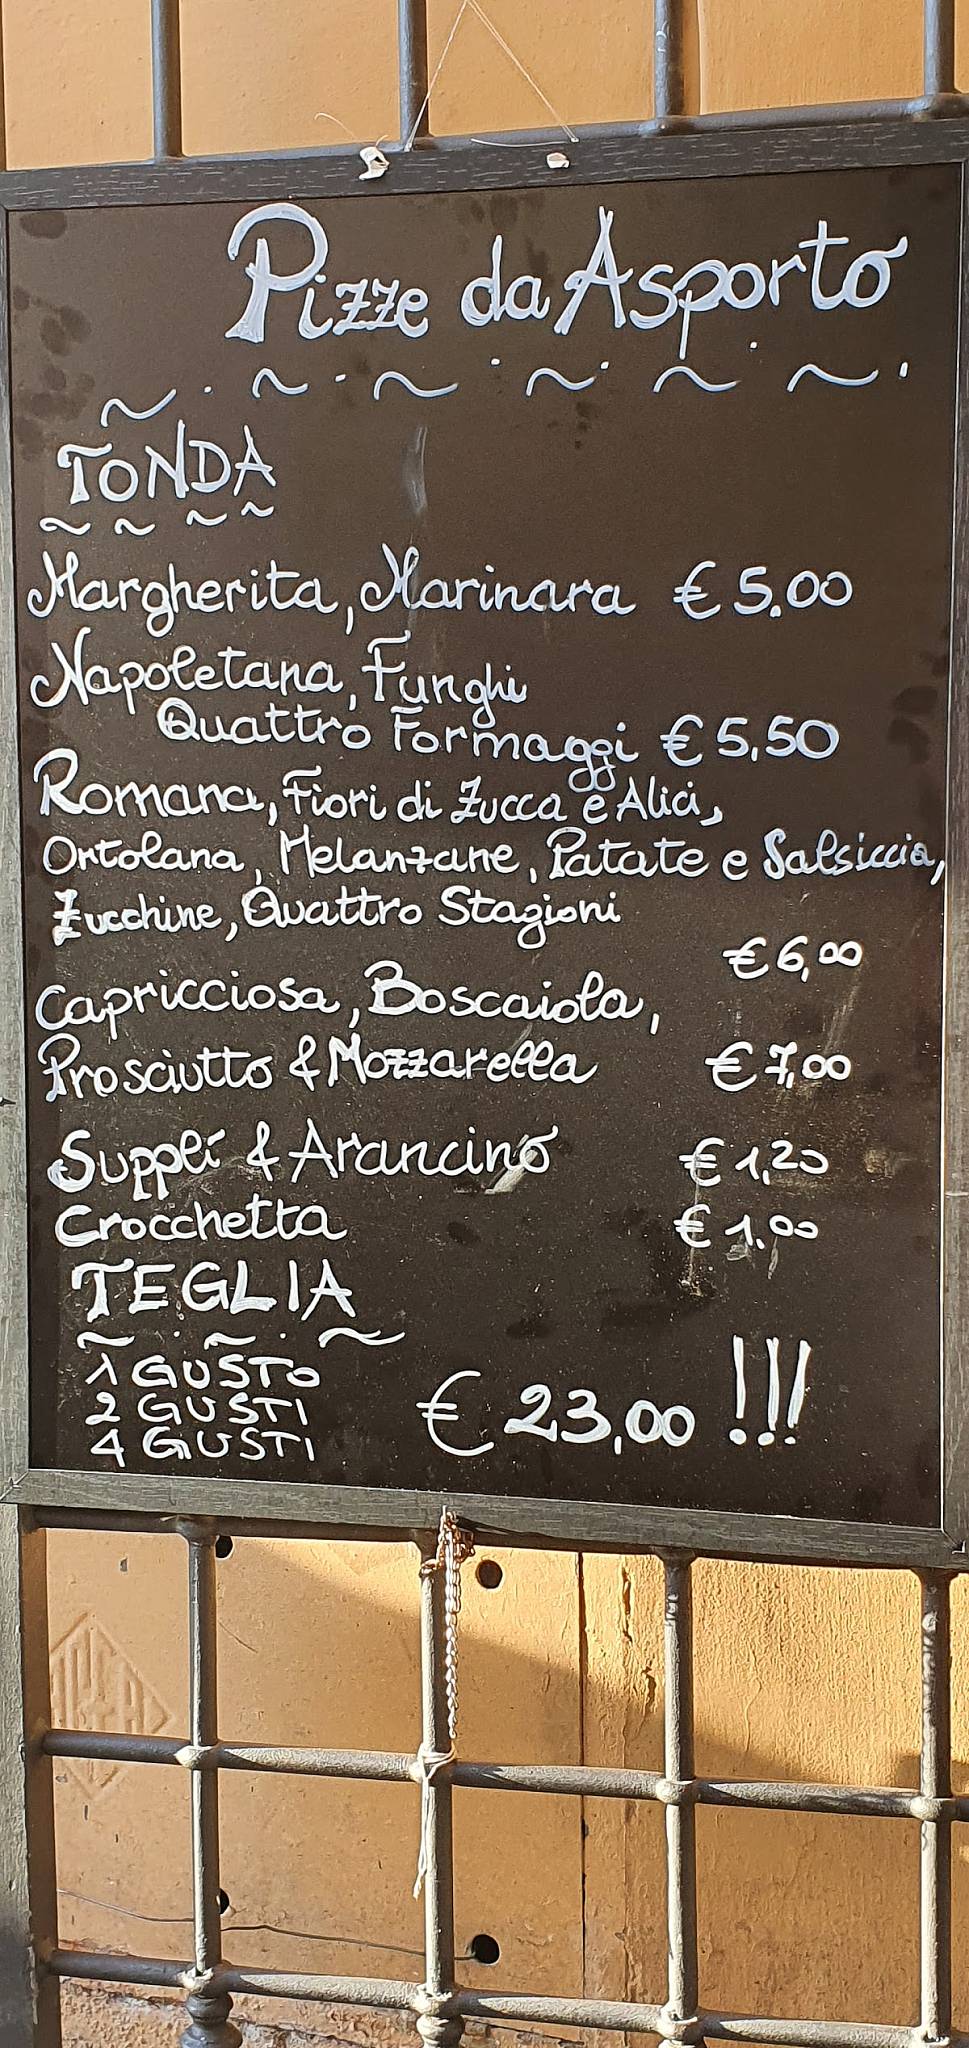 Pizze da Asporto
TONDA
Margherita, Marinara € 5.00
Napoletana, Funghi
Quattro Formaggi € 5,50
Romana, Fiori di Zucca e Alici,
Ortolana, Melanzane, Patate e Salsiccia,
Zucchine, Quattro Stagioni
€ 6,00
Capricciosa, Boscaiola,
Prosciutto & Mozzarella € 7,00
Supplí & Arancino € 1,20
Crocchetta € 1.00
TEGLIA
1 GUSTO
2 GUSTI € 23,00 !!!
4 GUSTI